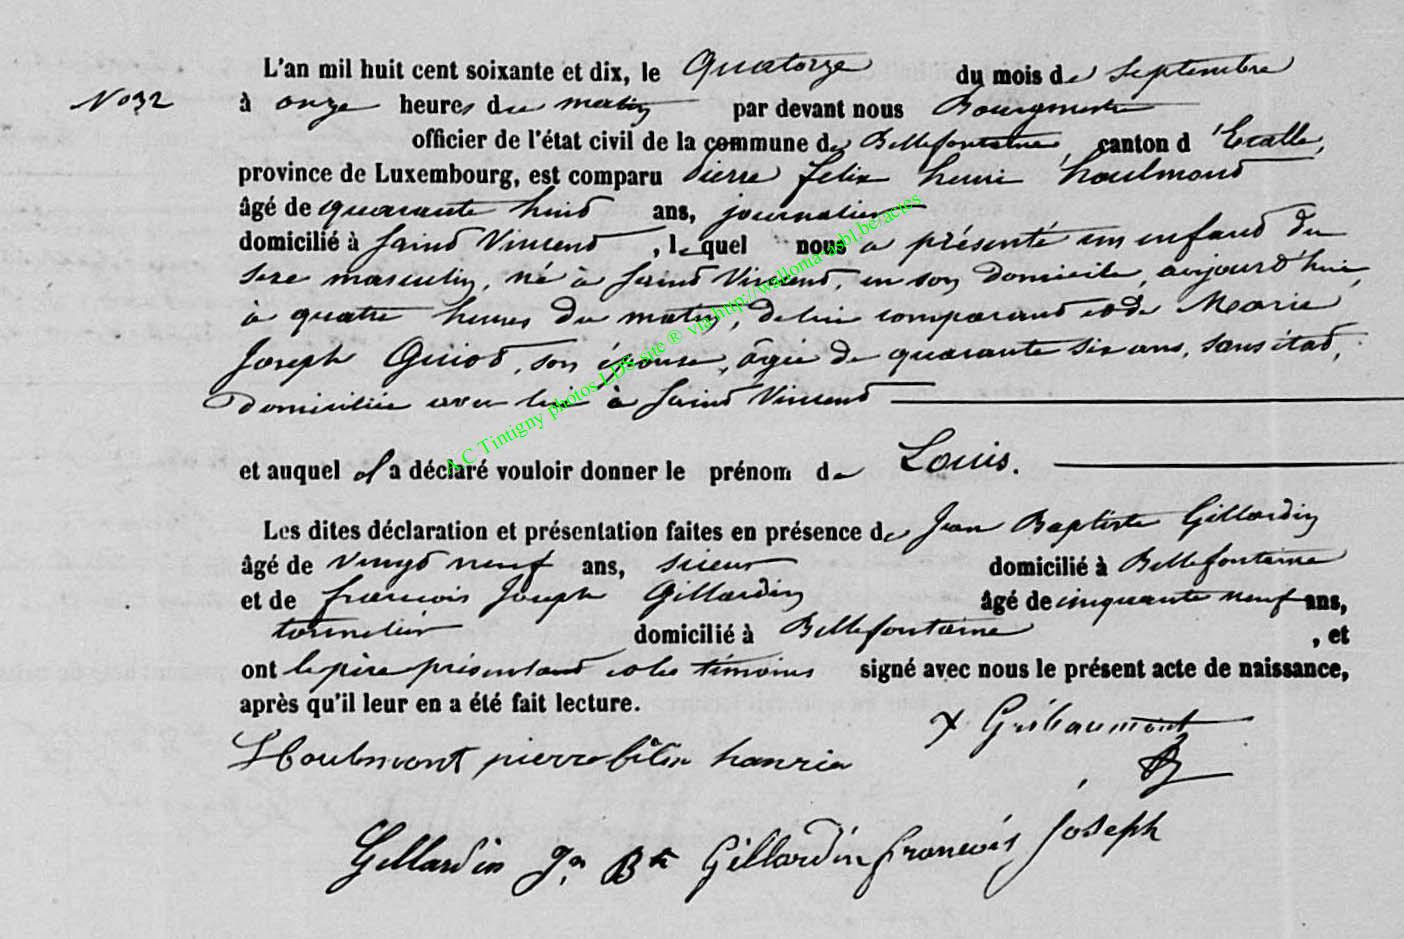 L'an mil huit cent soixante et dix, le Quatorze du mois de Septembre
No 32 à onze heures du matin par devant nous Bourgmestre
officier de l'état civil de la commune de Bellefontaine, canton d'Etalle,
province de Luxembourg, est comparu Pierre felix henri houlmond
âgé de quarante huid ans, journalier
domicilié à Saind Vincend, lequel nous a présenté un enfand du
sexe masculin, né à Saind Vincend, en son domicile, aujourd'hui,
à quatre heures du matin, de lui comparand et de Marie
Joseph Guiod, son épouse, âgée de quarante six ans, sans étad,
domiciliée avec lui à Saind Vincend
et auquel il a déclaré vouloir donner le prénom de Louis.
Les dites déclaration et présentation faites en présence de Jean Baptiste Gillardin
âgé de vingd neuf ans, scieur domicilié à Bellefontaine
et de francois Joseph Gillardin âgé de cinquante neuf ans,
tonnelier domicilié à Bellefontaine, et
ont le père présentand et les témoins signé avec nous le présent acte de naissance,
après qu'il leur en a été fait lecture.
Houlmont pierre félix hanrie
Gillardin Jn Bte Gillardin francois Joseph
A.C Tintigny photos LDS site ® via http://wallonia-asbl.be/actes